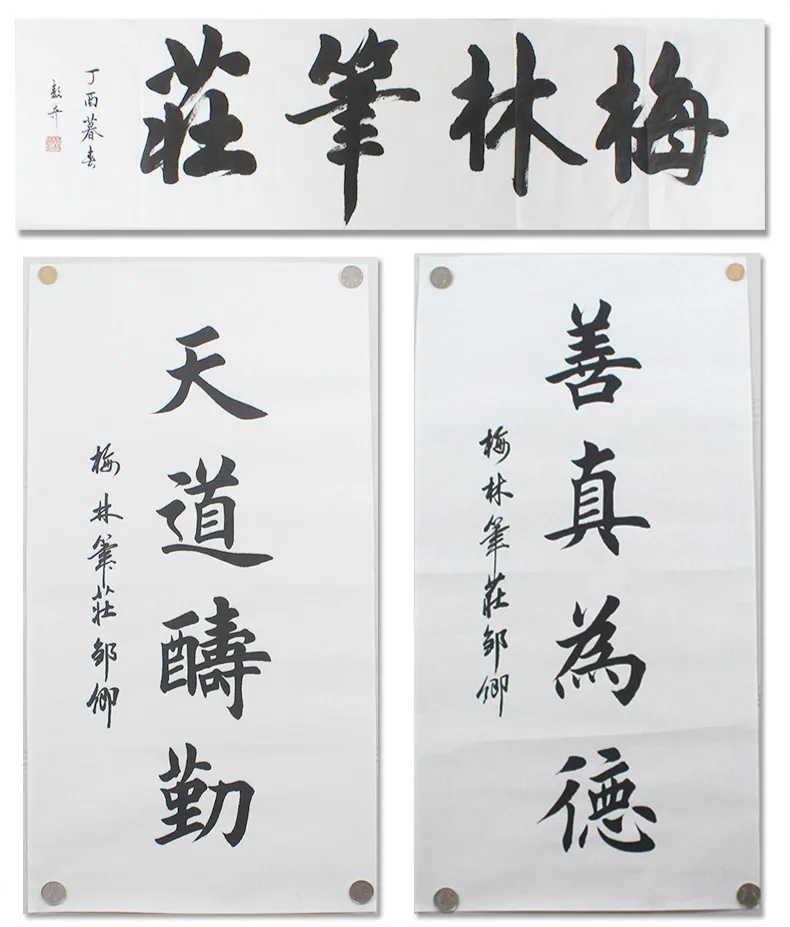 梅林筆莊
丁酉暮春
善真為德
梅林筆莊邹卿
天道醻勤
梅林筆莊邹卿